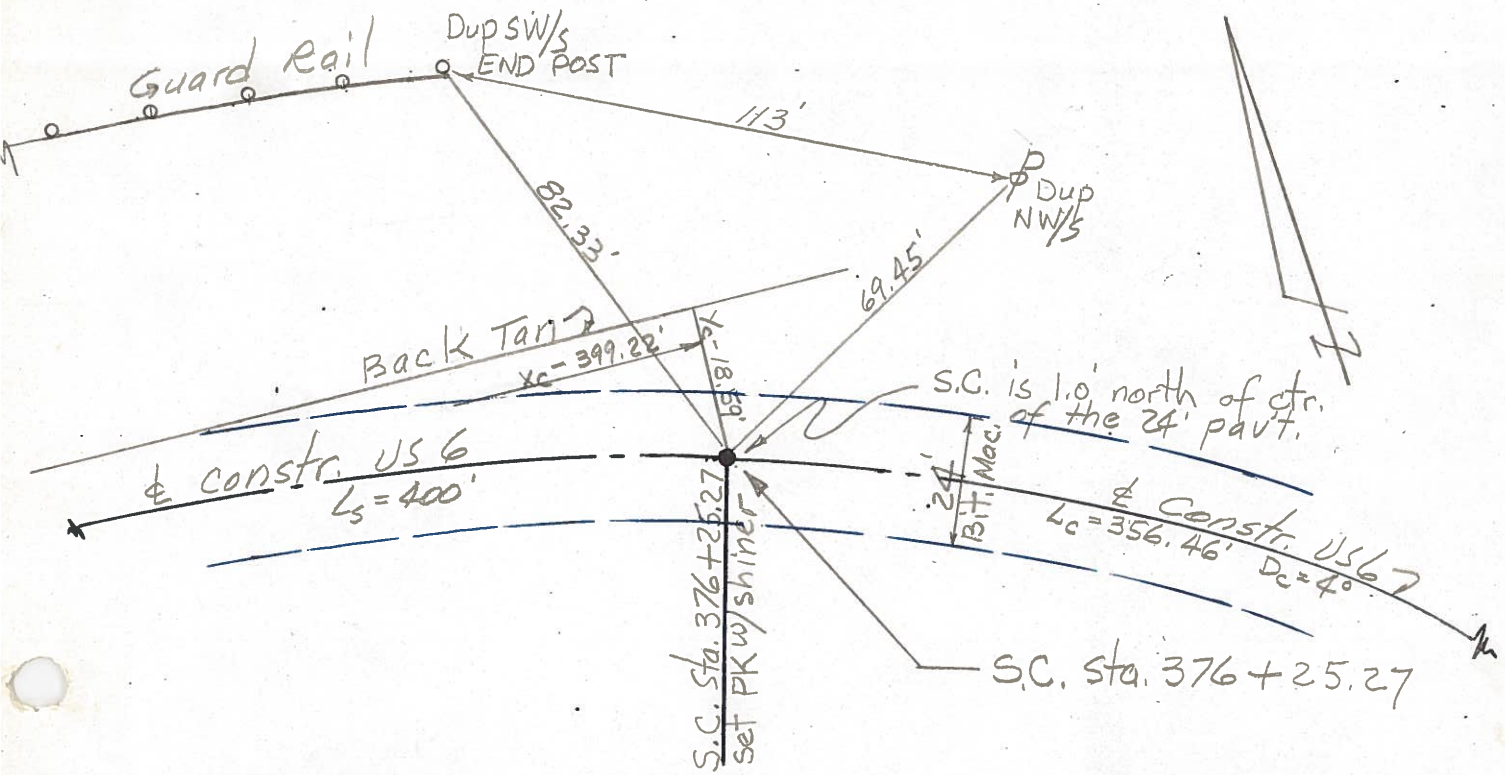 Guard Rail
Dup SW/s
END POST
113'
P
Dup
NW/s
82.33'
69.45'
Back Tan
xc - 399.22'
Yc - 18.59'
S.C. is 1.0' north of ctr.
of the 24' pav't.
℄ constr. US 6
Ls = 400'
24'
Bit. Mac.
℄ Constr. US 6
Lc = 356.46'
Dc = 4°
S.C. Sta. 376 + 25.27
Set PK w/ shiner
S.C. sta. 376 + 25.27